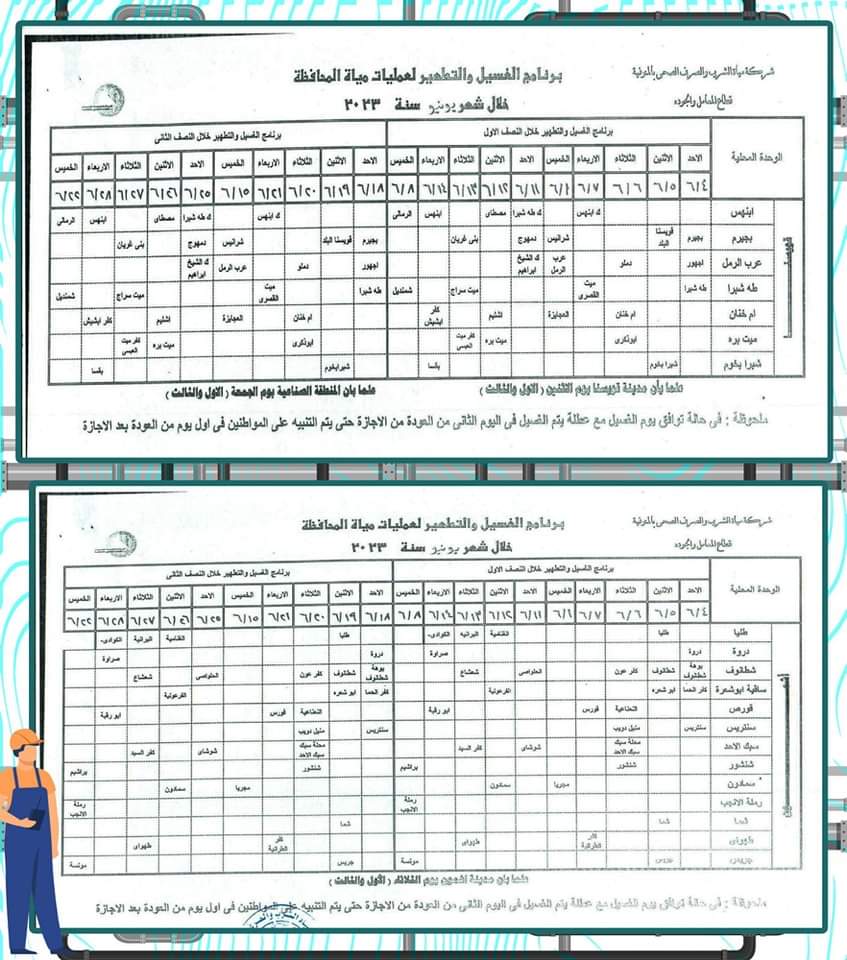 شركة مياه الشرب والصرف الصحى بالمنوفية
قطاع المعامل والجوده
برنامج الغسيل والتطهير لعمليات مياة المحافظة
خلال شهر يونيو سنة ٢٠٢٣
الوحدة المحلية
برنامج الغسيل والتطهير خلال النصف الاول
برنامج الغسيل والتطهير خلال النصف الثانى
الاحد الاثنين الثلاثاء الاربعاء الخميس الاحد الاثنين الثلاثاء الاربعاء الخميس الاحد الاثنين الثلاثاء الاربعاء الخميس الاحد الاثنين الثلاثاء الاربعاء الخميس
٦/٤ ٦/٥ ٦/٦ ٦/٧ ٦/١١ ٦/١٢ ٦/١٣ ٦/١٤ ٦/٨ ٦/١٨ ٦/١٩ ٦/٢٠ ٦/٢١ ٦/١٥ ٦/٢٥ ٦/٢٦ ٦/٢٧ ٦/٢٨ ٦/٢٢
ابنهس ك ابنهس ك طه شبرا مصطاى ابنهس الرمالى ك ابنهس ك طه شبرا مصطاى ابنهس الرمالى
بجيرم بجيرم قويسنا البلد شرانيس دمهوج بنى غريان بجيرم قويسنا البلد شرانيس دمهوج بنى غريان
عرب الرمل اجهور دملو عرب الرمل ك الشيخ ابراهيم اجهور دملو عرب الرمل ك الشيخ ابراهيم
طه شبرا طه شبرا ميت القصرى ميت سراج شمنديل طه شبرا ميت القصرى ميت سراج شمنديل
ام خنان ام خنان العجايزة اشليم كفر ابشيش ام خنان العجايزة اشليم كفر ابشيش
ميت بره ابونكرى ميت بره كفر ميت العبسى ابونكرى ميت بره كفر ميت العبسى
شبرا بخوم شبرا بخوم بقسا شبرابخوم بقسا
قويسنا
علما بأن مدينة قويسنا يوم الاثنين ( الاول والثالث )
علما بان المنطقة الصناعية يوم الجمعة ( الاول والثالث )
ملحوظة : فى حالة توافق يوم الغسيل مع عطلة يتم الغسيل فى اليوم الثانى من العودة من الاجازة حتى يتم التنبيه على المواطنين فى اول يوم من العودة بعد الاجازة
شركة مياه الشرب والصرف الصحى بالمنوفية
قطاع المعامل والجوده
برنامج الغسيل والتطهير لعمليات مياة المحافظة
خلال شهر يونيو سنة ٢٠٢٣
الوحدة المحلية
برنامج الغسيل والتطهير خلال النصف الاول
برنامج الغسيل والتطهير خلال النصف الثانى
الاحد الاثنين الثلاثاء الاربعاء الخميس الاحد الاثنين الثلاثاء الاربعاء الخميس الاحد الاثنين الثلاثاء الاربعاء الخميس الاحد الاثنين الثلاثاء الاربعاء الخميس
٦/٤ ٦/٥ ٦/٦ ٦/٧ ٦/١١ ٦/١٢ ٦/١٣ ٦/١٤ ٦/٨ ٦/١٨ ٦/١٩ ٦/٢٠ ٦/٢١ ٦/١٥ ٦/٢٥ ٦/٢٦ ٦/٢٧ ٦/٢٨ ٦/٢٢
طليا طليا القناعية البرانية الكوادى طليا القنامية البرانية الكوادى
دروة دروة صراوة دروة صراوة
شطانوف بوهة شطانوف شطانوف كفر عون الحلواصى شعشاع بوهة شطانوف شطانوف كفر عون الحلواصى شعشاع
ساقية ابوشعرة كفر الحما ابو شعره الفرعونية كفر الحما ابو شعره الفرعونية
قورص النعناعية قورص ابو رقبة النعناعية قورص ابو رقبة
سنتريس سنتريس منيل دويب سنتريس منيل دويب
سبك الاحد محلة سبك سبك الاحد شوشاى كفر السيد محلة سبك سبك الاحد شوشاى كفر السيد
شنشور شنشور براشيم شنشور براشيم
سمادون مجريا سمادون مجريا سمادون
رملة الانجب رملة الانجب رملة الانجب
شما شما شما
طهواى طهواى كفر طهواى
جريس جريس مونسة جريس مونسة
اشمون
علما بان مدينة اشمون يوم الثلاثاء ( الأول والثالث )
ملحوظة : فى حالة توافق يوم الغسيل مع عطلة يتم الغسيل فى اليوم الثانى من العودة من الاجازة حتى يتم التنبيه على المواطنين فى اول يوم من العودة بعد الاجازة